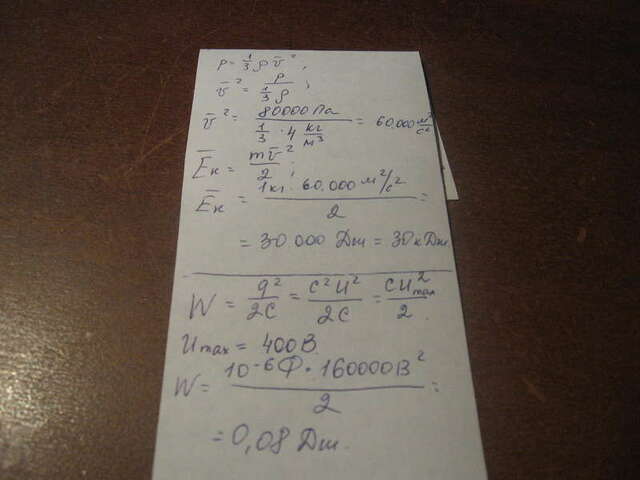 p = 1/3 ρ v̄²,
v̄² = p / (1/3 ρ) ;
v̄² = 80000 Па / (1/3 · 4 кг/м³) = 60.000 м²/с²
Ēк = mv̄²/2 ;
Ēк = 1кг · 60.000 м²/с² / 2 =
= 30 000 Дж = 30 кДж
W = q²/2C = C²U²/2C = CU²max/2
Umax = 400 В
W = 10⁻⁶ Ф · 160000 В² / 2 =
= 0,08 Дж.